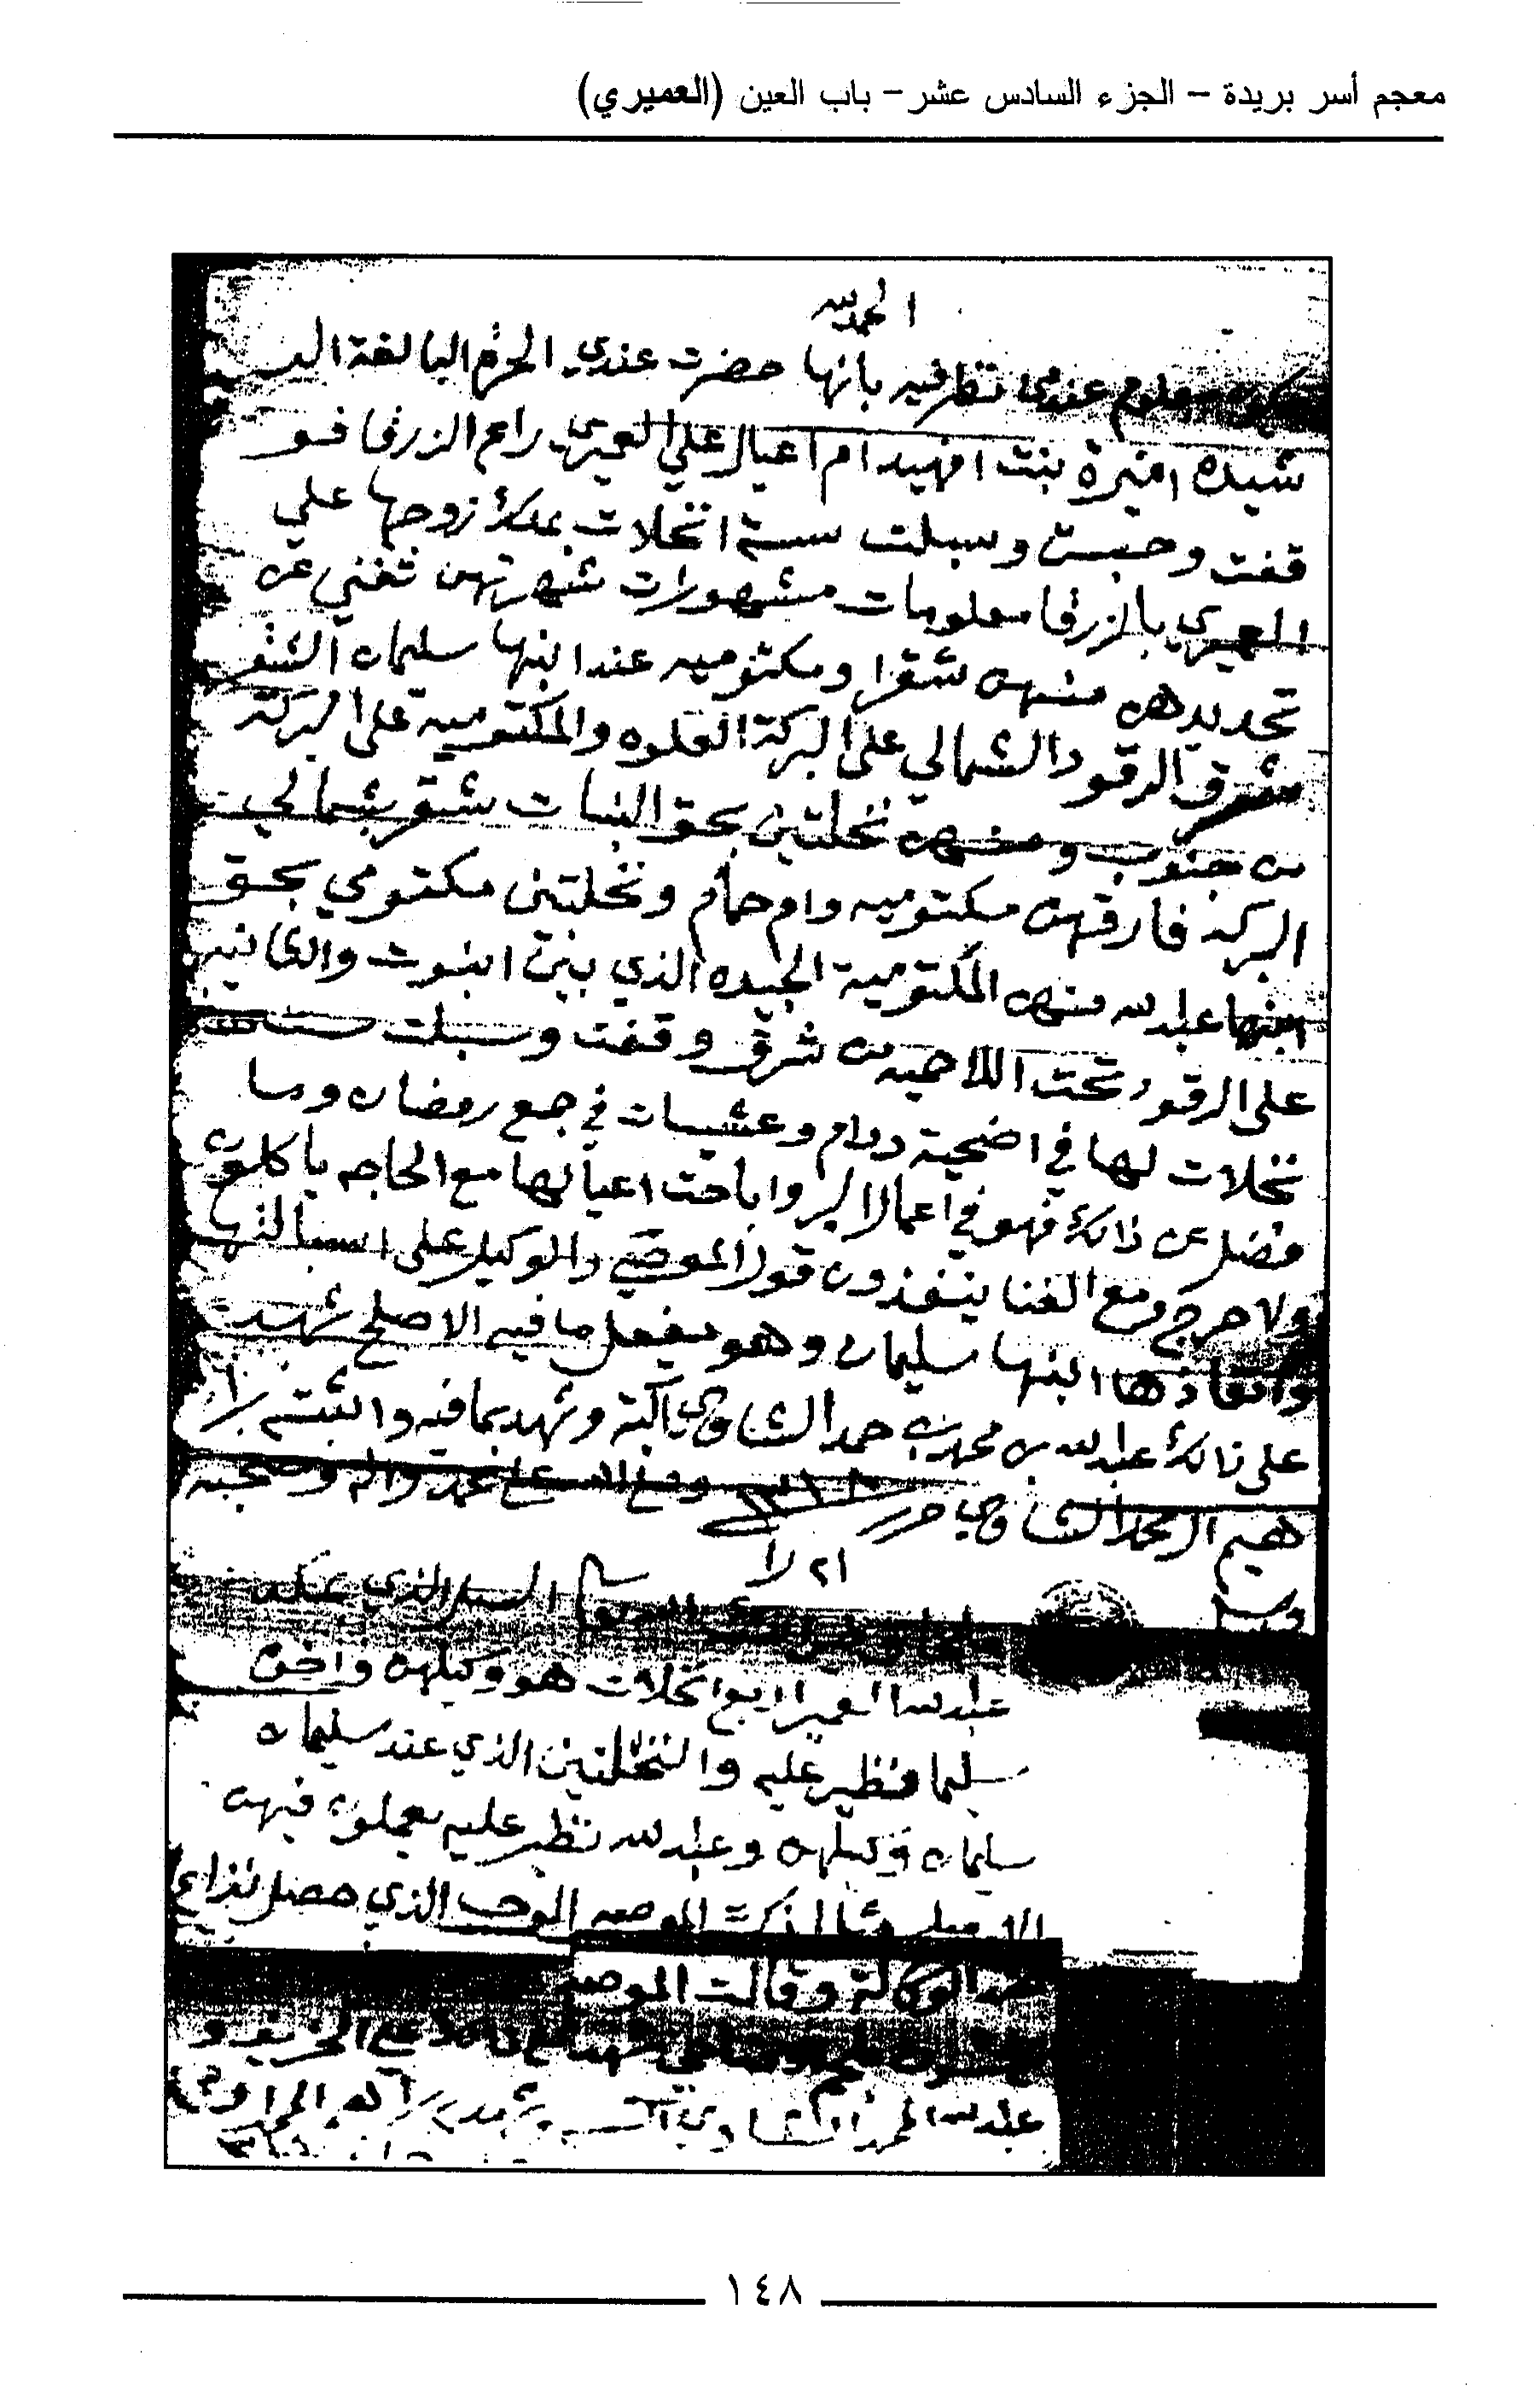 معجم أسر بريدة – الجزء السادس عشر – باب العين (العميري)
الحمد لله
معلوم عندي بانها حضرت عندي الحرم البالغة الر
شيده امنيرة بنت افهيد ام اعيال علي العميري راعي الزرقا فو
قفت وحبست وسبلت ستة انخلات بملك زوجها علي
العميري بالزرقا معلومات مشهورات شهرتهن تغني عن
تحديدهن منهن شقرا ومكتوميه عند ابنها سليمان الشقر
شرق الرقود الشمالي على البركة القلوه والمكتومية على البركة
من جنوب ومنهن نخلتين بحق البنات شقر شمالي
البركة فارقهن مكتوميه وام حمام ونخلتين مكتومي بحق
ابنها عبدالله منهن المكتومية الجيده الذي بين البنوت والثانيه
على الرقود تحت اللاحيه من شرق وقفت وسبلت
نخلات لها في اضحية دوام وعشيات في جمع رمضان وما
فضل عن ذالك فهو في اعمال البر واباحت اعيالها مع الحاجه ياكلون
ولا حرج ومع الغنا ينفذون قول الموصي والوكيل على اسبالتها
وانفاذها ابنها سليمان وهو يفعل ما فيه الاصلح شهد
على ذالك عبدالله بن محمد بن حمد الشاوي كاتبه وشهد بما فيه واثبته ابرا
هيم المحمد الشاوي حرر وصلى الله على محمد واله وصحبه
وسلم
السبل الذي عند
عبدالله العميري اربع انخلات هو وكيلهن واخوه
سليما نظير عليه والنخلتين الذي عند سليمان
سليمان وكيلهن وعبدالله نظير عليه يعملون فيهن
الذي حصل نزاع
عند الوكالة وقالت الموصيه
عبدالله المحمد الشاوي
١٤٨